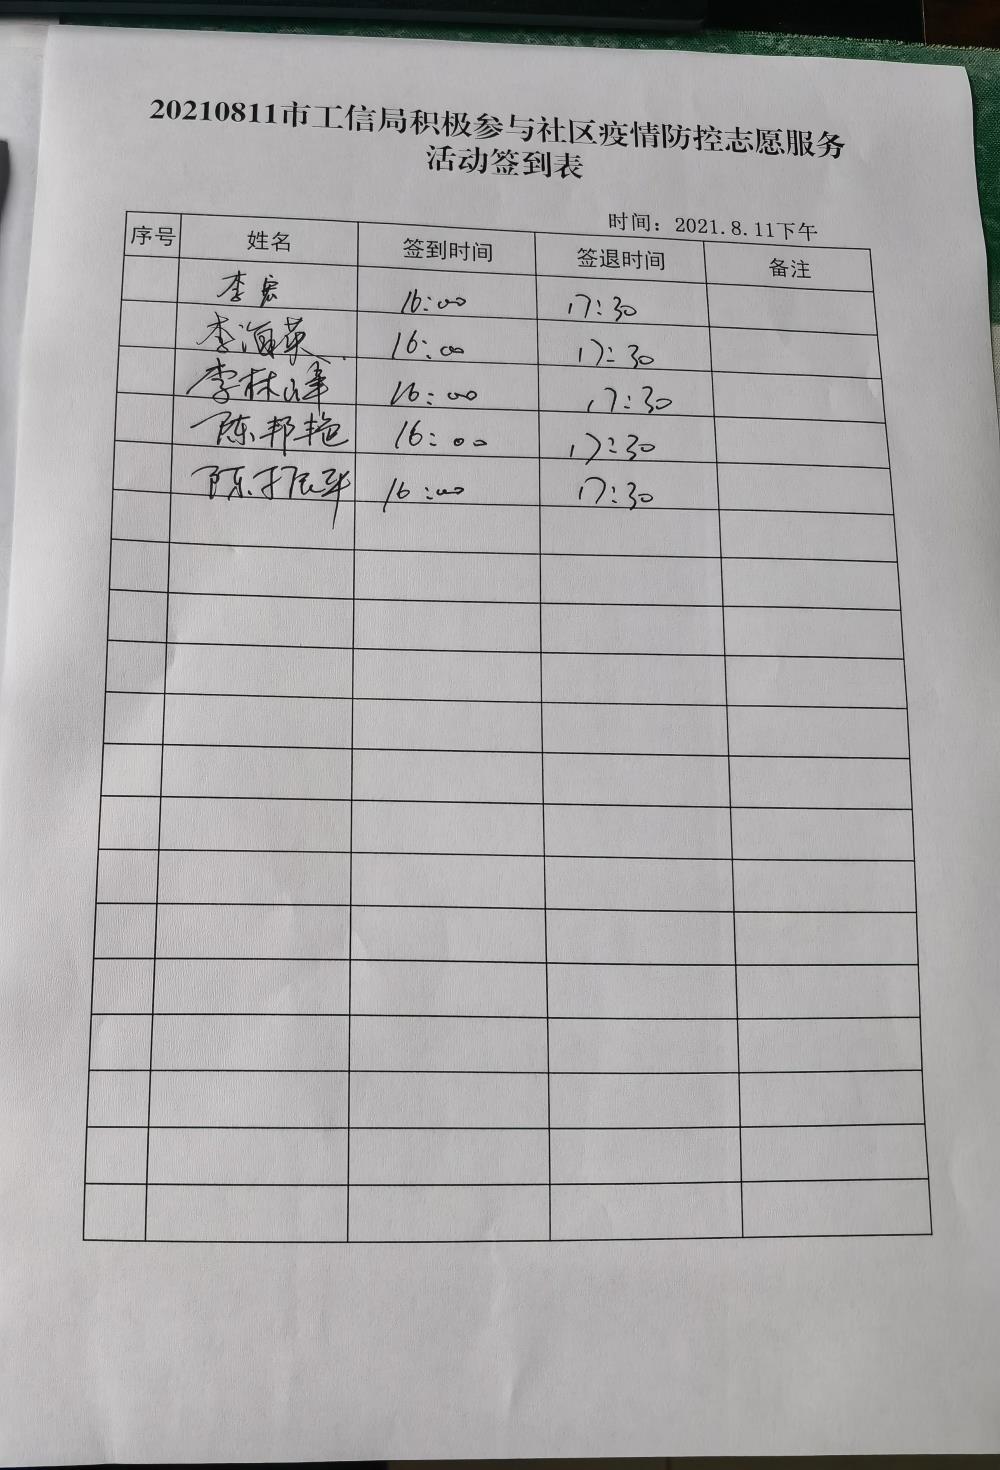 20210811市工信局积极参与社区疫情防控志愿服务
活动签到表
时间：2021.8.11下午
序号 姓名 签到时间 签退时间 备注
李宏 16:00 17:30
李海英 16:00 17:30
李林峰 16:00 17:30
陈邦艳 16:00 17:30
陈振华 16:00 17:30